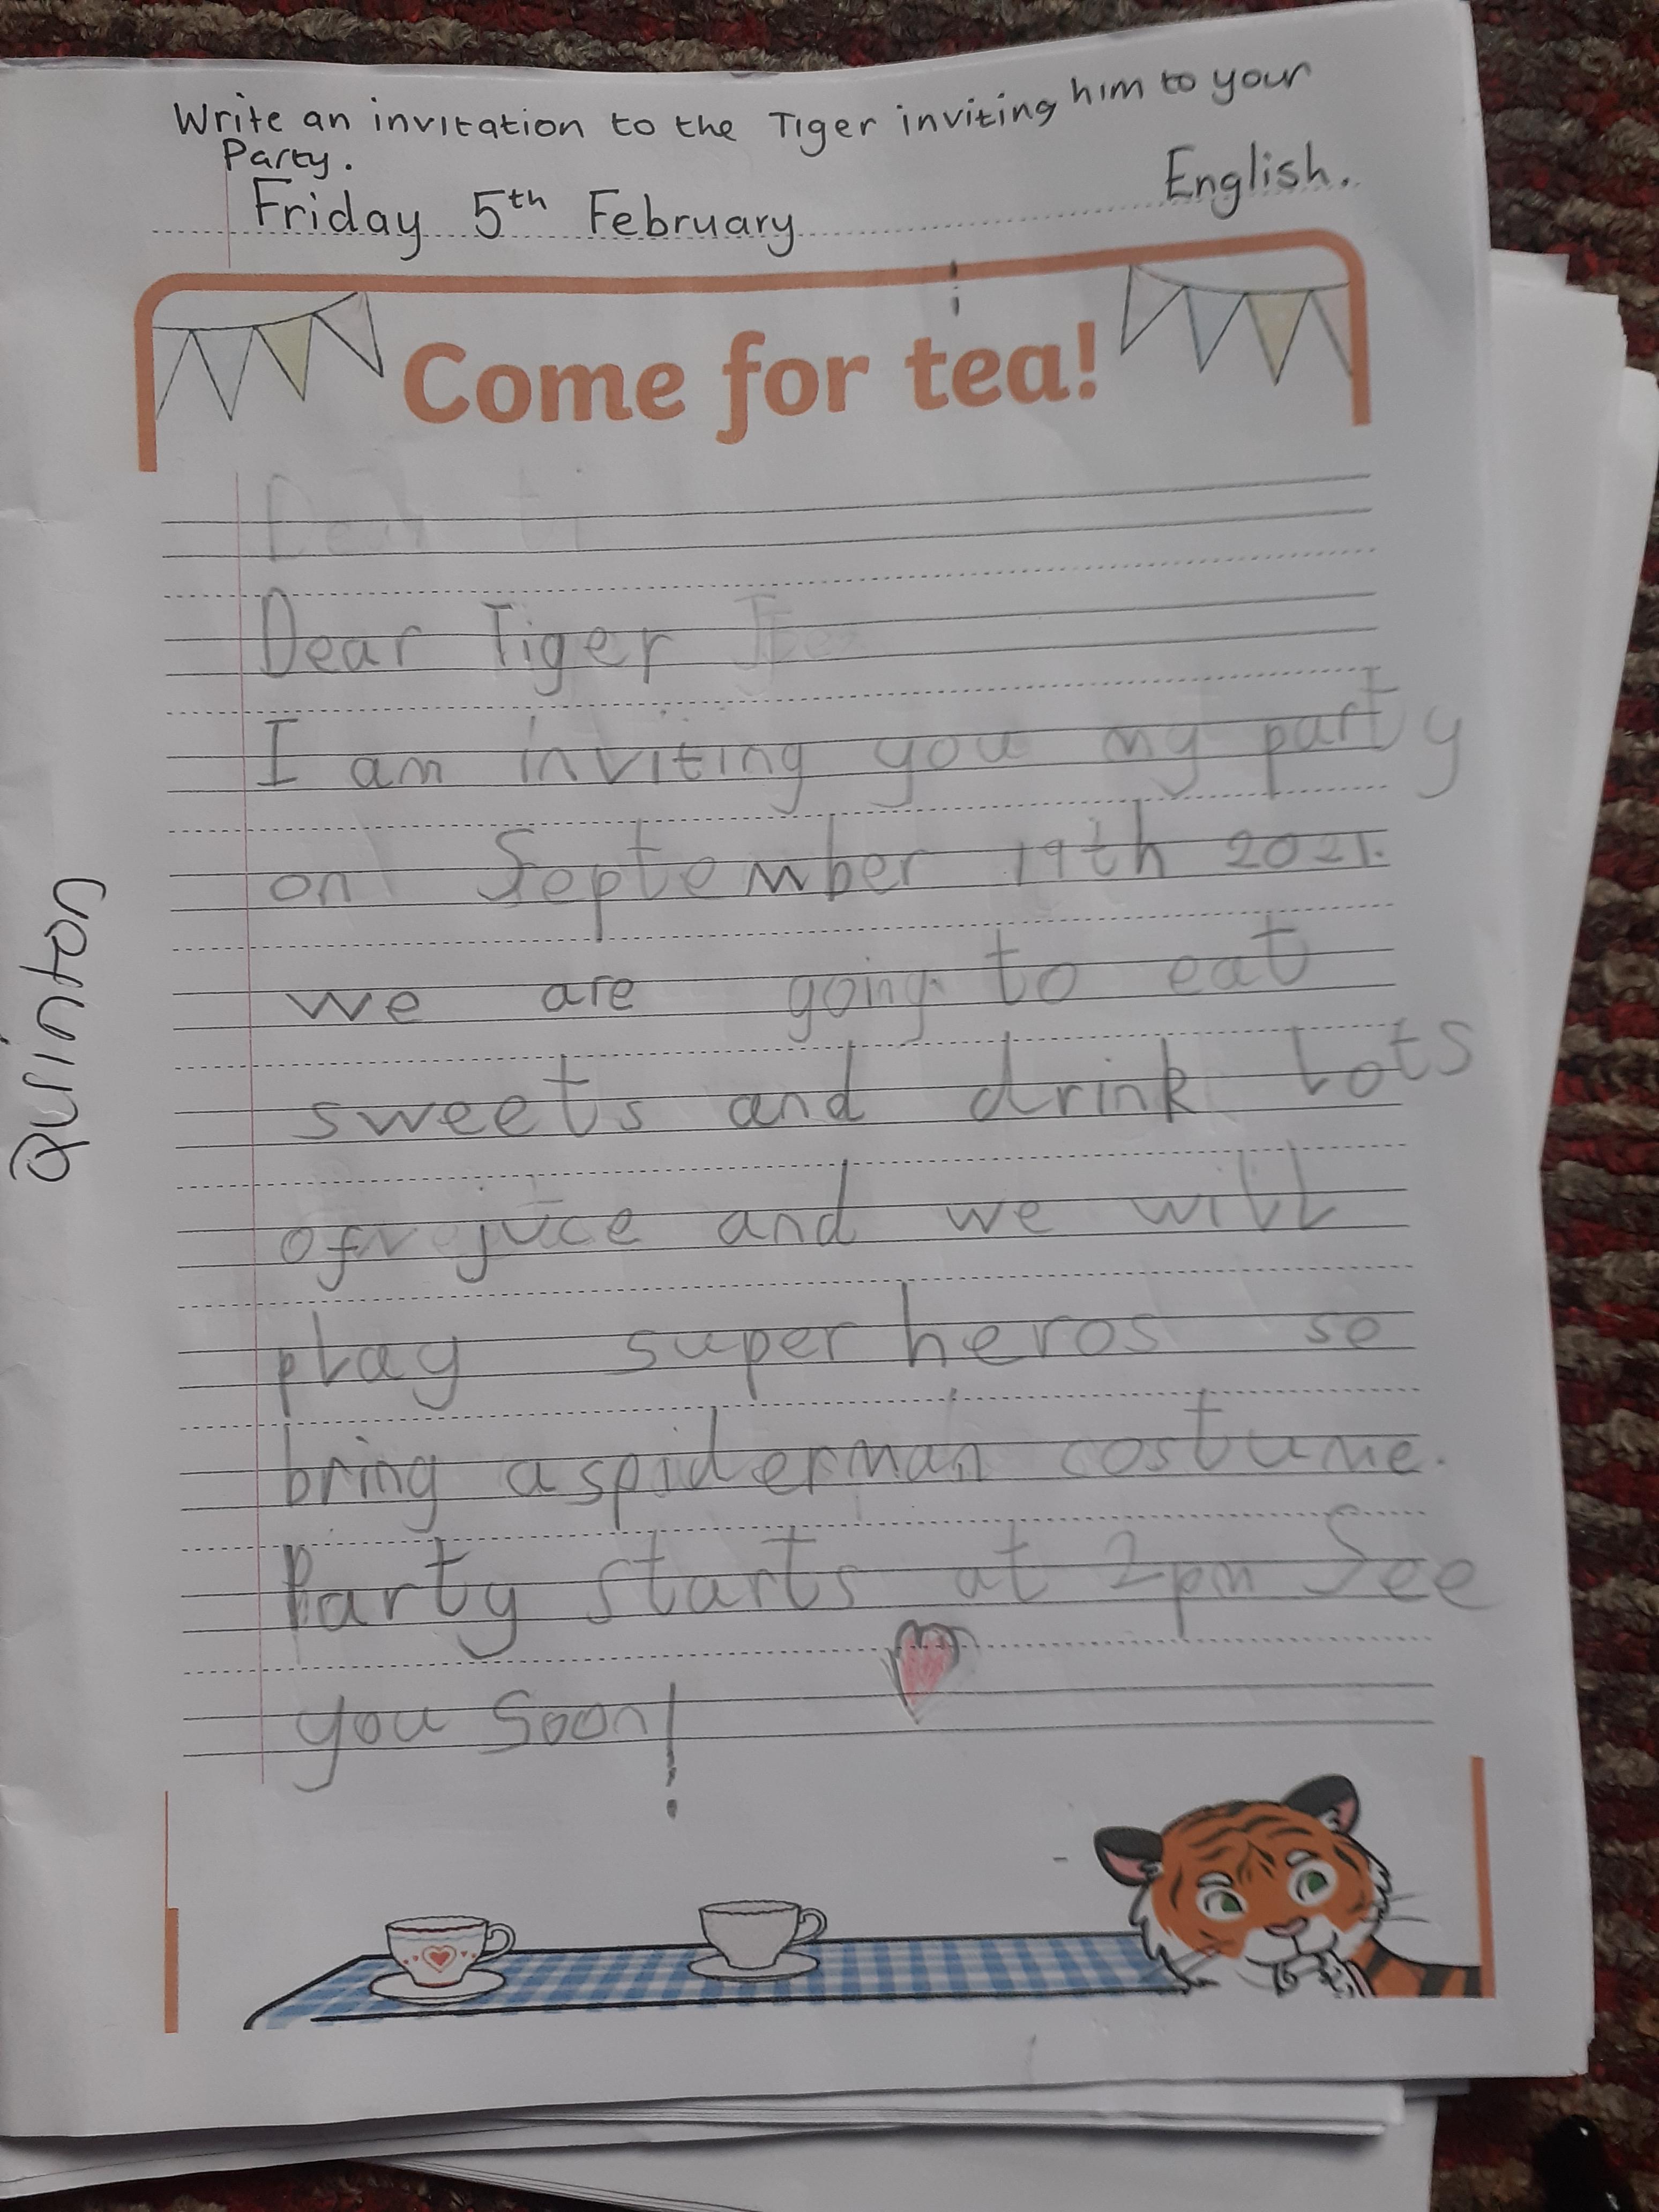 Write an invitation to the Tiger inviting him to your
Party.
English.
Friday 5th February
Come for tea!
Dear Tiger
I am inviting you my party
on September 19th 2021.
we are going to eat
sweets and drink lots
of juice and we will
play super heros so
bring a spiderman costume.
Party starts at 2pm See
you Soon!
Quinton